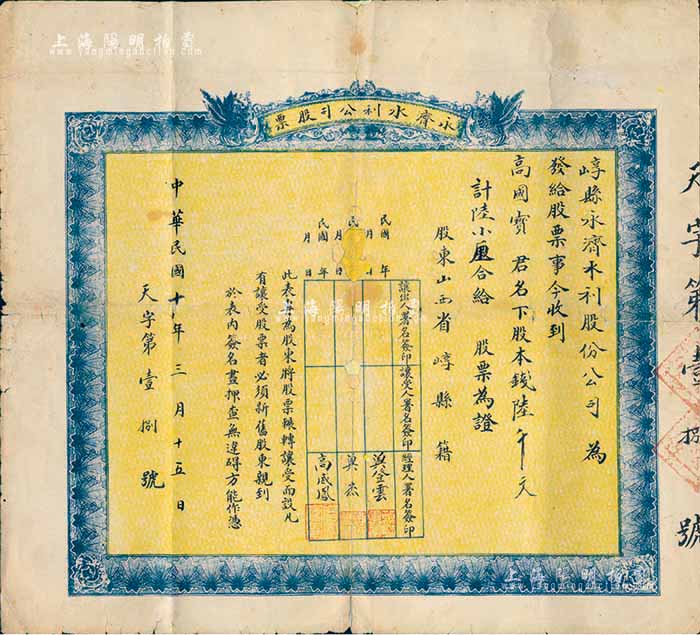 上海陽明拍賣
www.yangmingauction.com
永濟水利公司股票
崞縣永濟水利股份公司 為
發給股票事今收到
高國寶 君名下股本錢陸千文
計陸小厘合給 股票為證
股東山西省崞縣籍
讓出人署名簽印 讓受人署名簽印 經理人署名簽印
民國 年 月 日
民國 年 月 日
民國 年 月 日
高成鳳
此表專為股東將股票輾轉讓受而設凡
有讓受股票者必須新舊股東親到
於表內簽名畫押查無違碍方能作憑
中華民國十年三月十五日
天字第壹捌號
天字第壹捌號
上海陽明拍賣
上海陽明拍賣